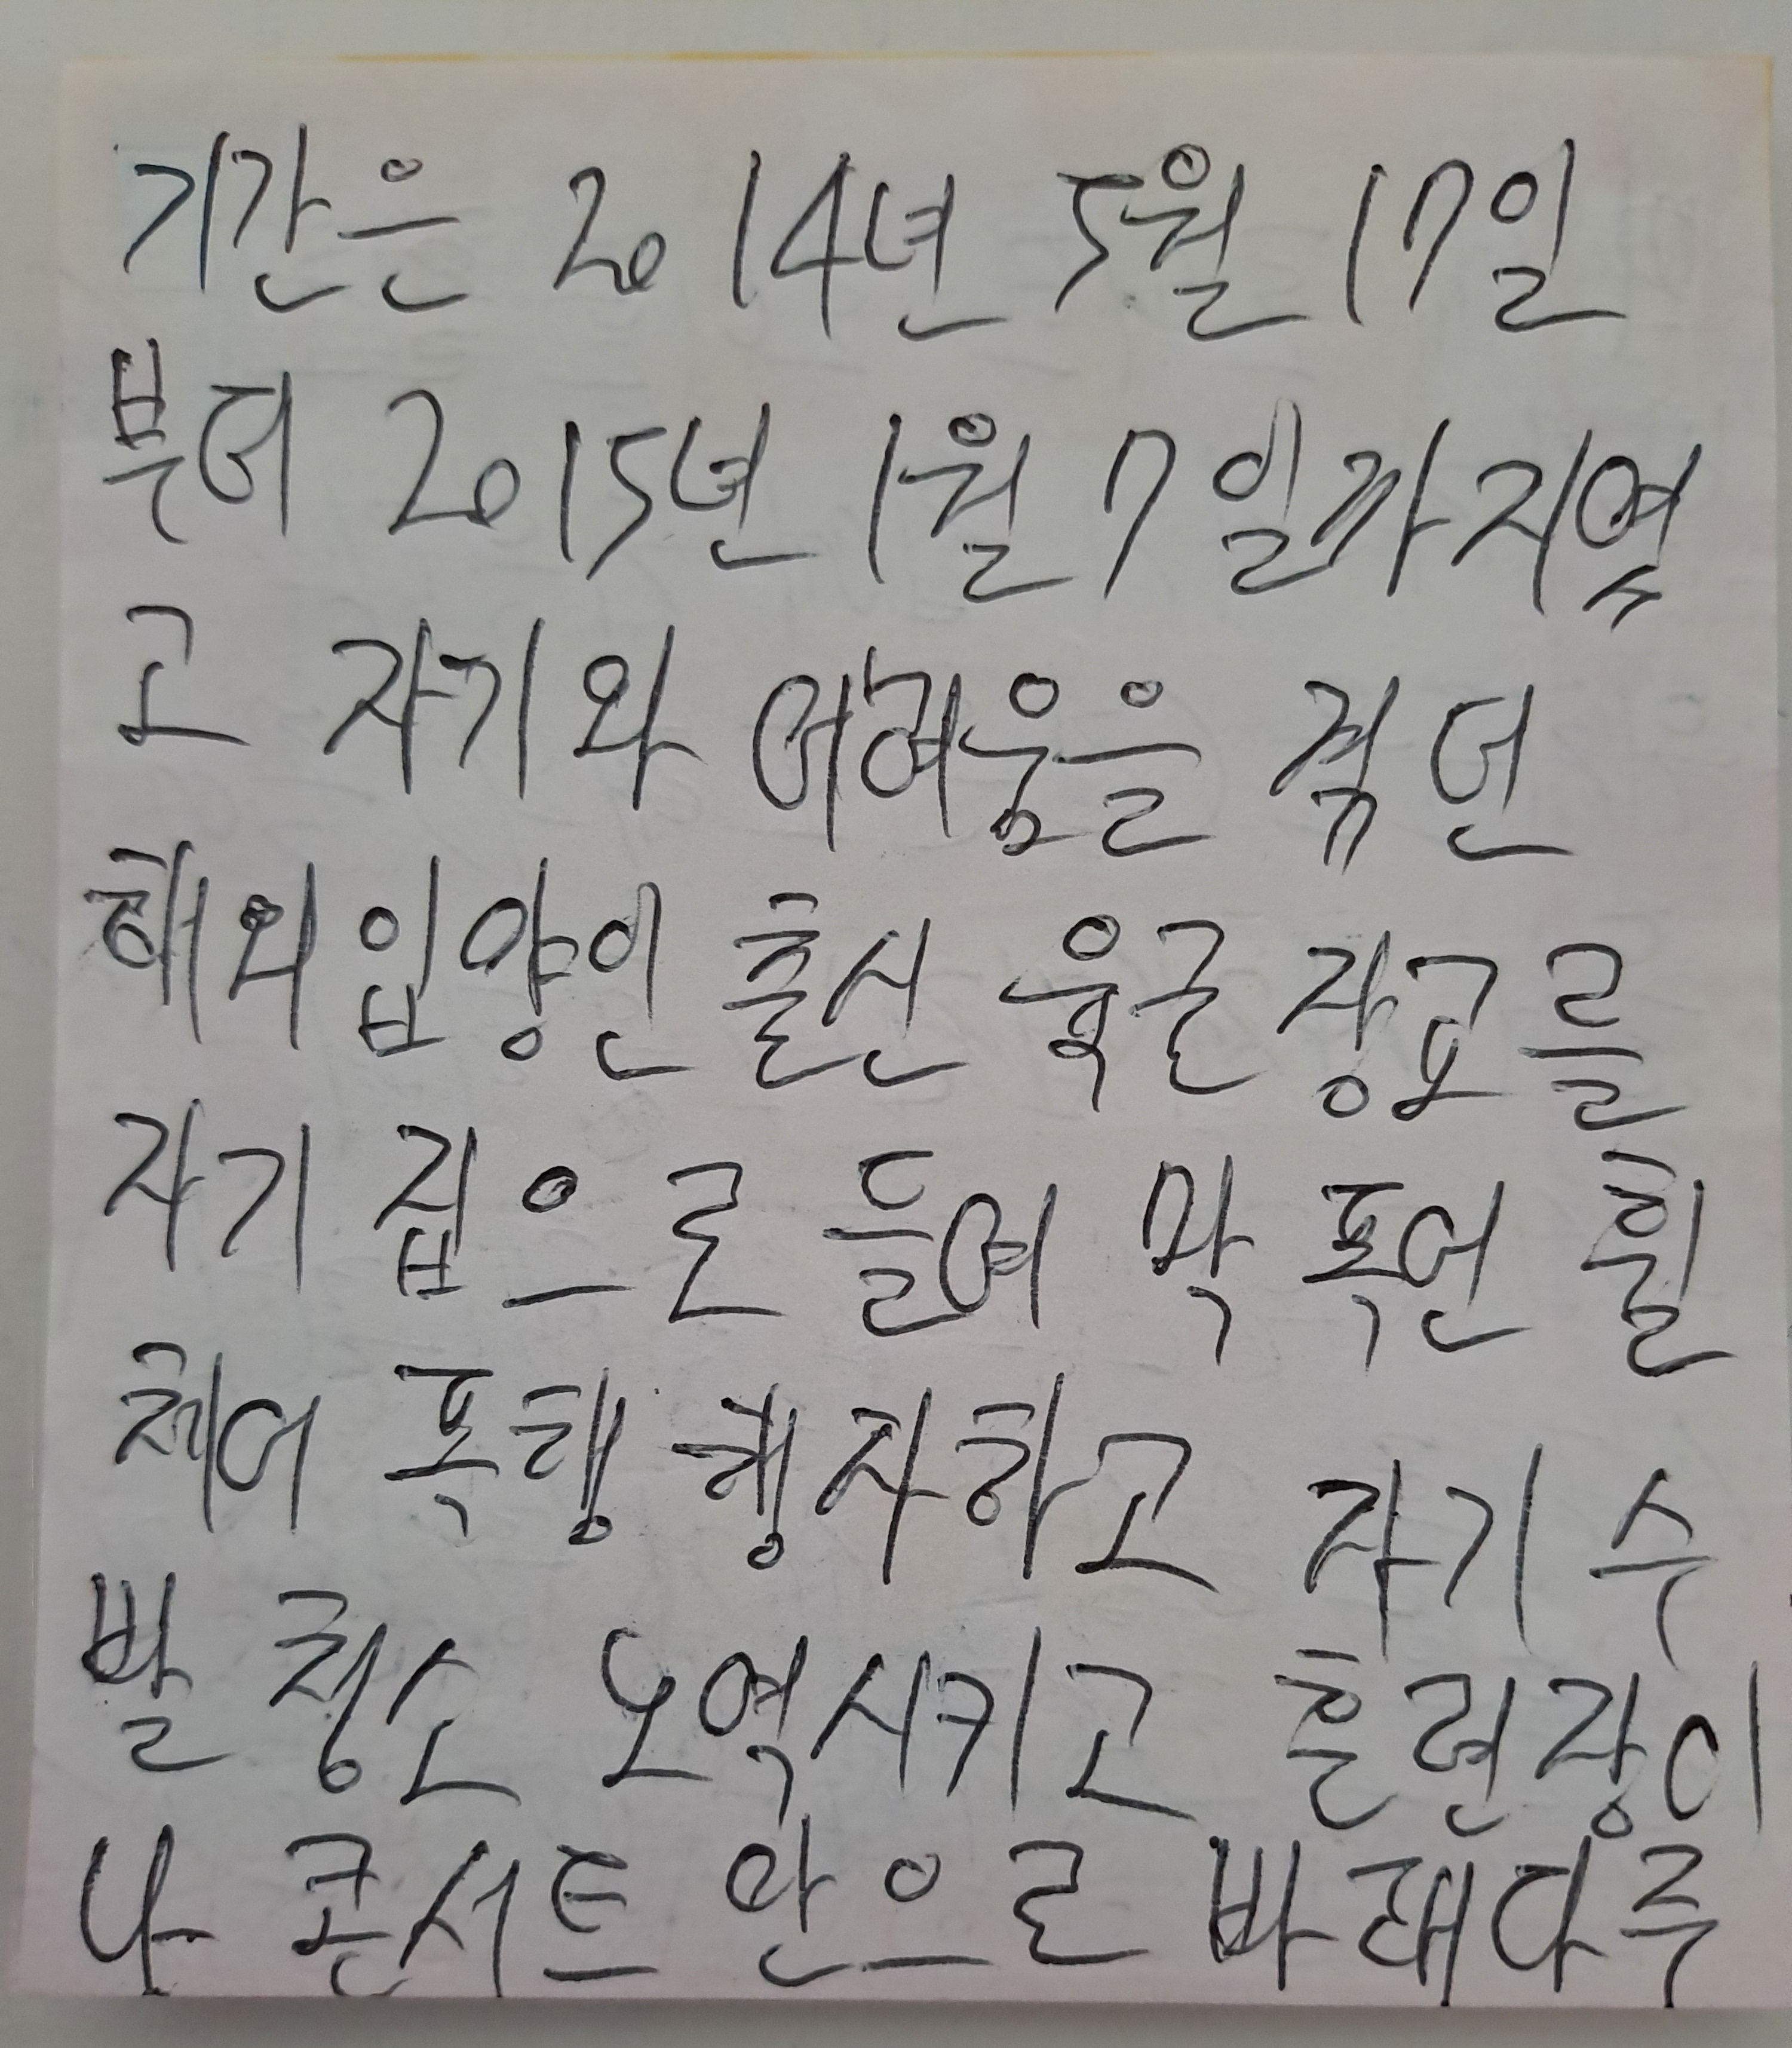 기간은 2014년 5월 17일
부터 2015년 1월 7일까지였
고 자기와 어려움을 겪던
해외입양인 출신 육군 장교를
자기 집으로 들여 막 폭언 휠
체어 폭행 행사하고 자기 수
발 청소 노역시키고 훈련장이
나 콘서트 안으로 바래다주